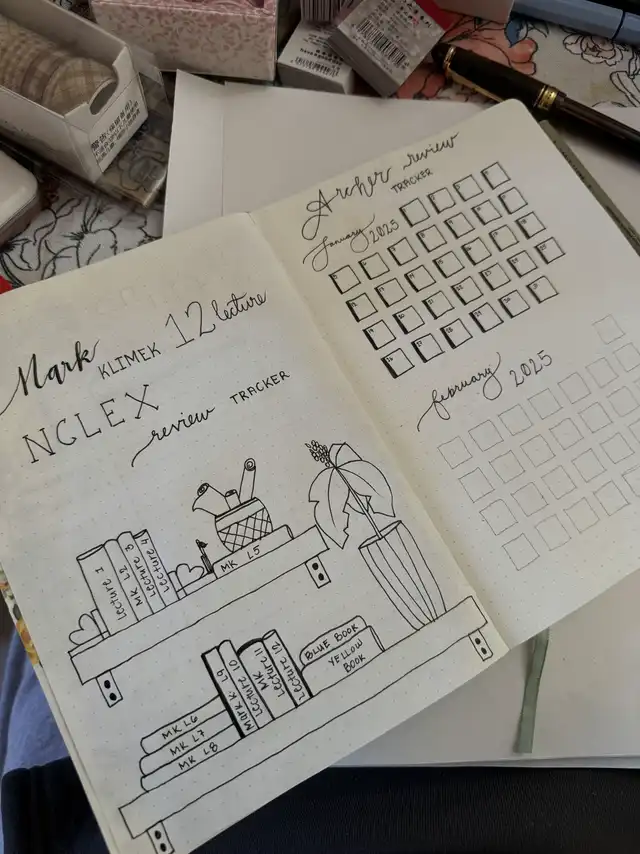 Mark KLIMEK 12 lecture
NCLEX
review TRACKER
Lecture 1
MK L2
Lecture 3
Lecture 4
MK L5
MK L6
MK L7
MK L8
Mark K L9
Lecture 10
MK Lecture 11
Lecture 12
BLUE BOOK
YELLOW
BOOK
Archer review
TRACKER
January 2025
february 2025